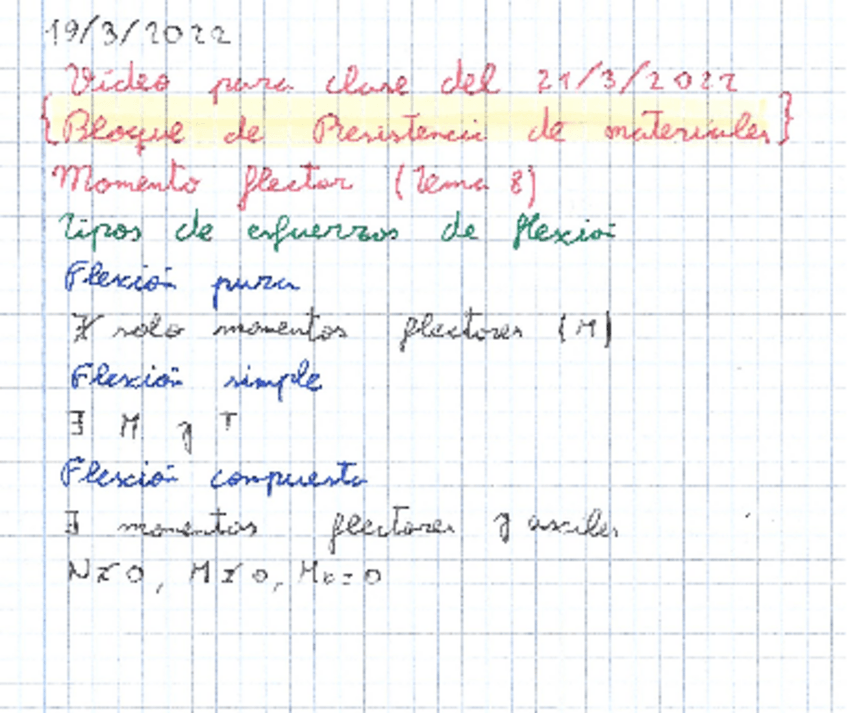 19/3/2022
Vídeo para clase del 21/3/2022
{Bloque de Resistencia de materiales}
Momento flector (Tema 8)
Tipos de esfuerzos de flexión
Flexión pura
∃ solo momentos flectores (M)
Flexión simple
∃ M y T
Flexión compuesta
∃ momentos flectores y axiles
N≠0, M≠0, Mt=0